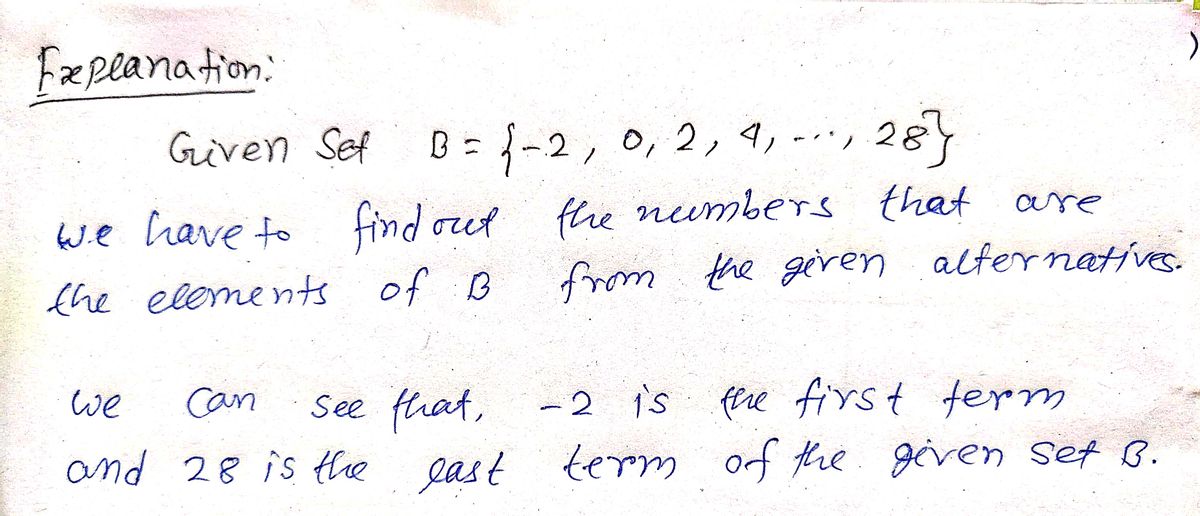 Explanation:
Given Set B = {-2, 0, 2, 4, ---, 28}
we have to find out the numbers that are
the elements of B from the given alternatives.
we can see that, -2 is the first term
and 28 is the last term of the given set B.